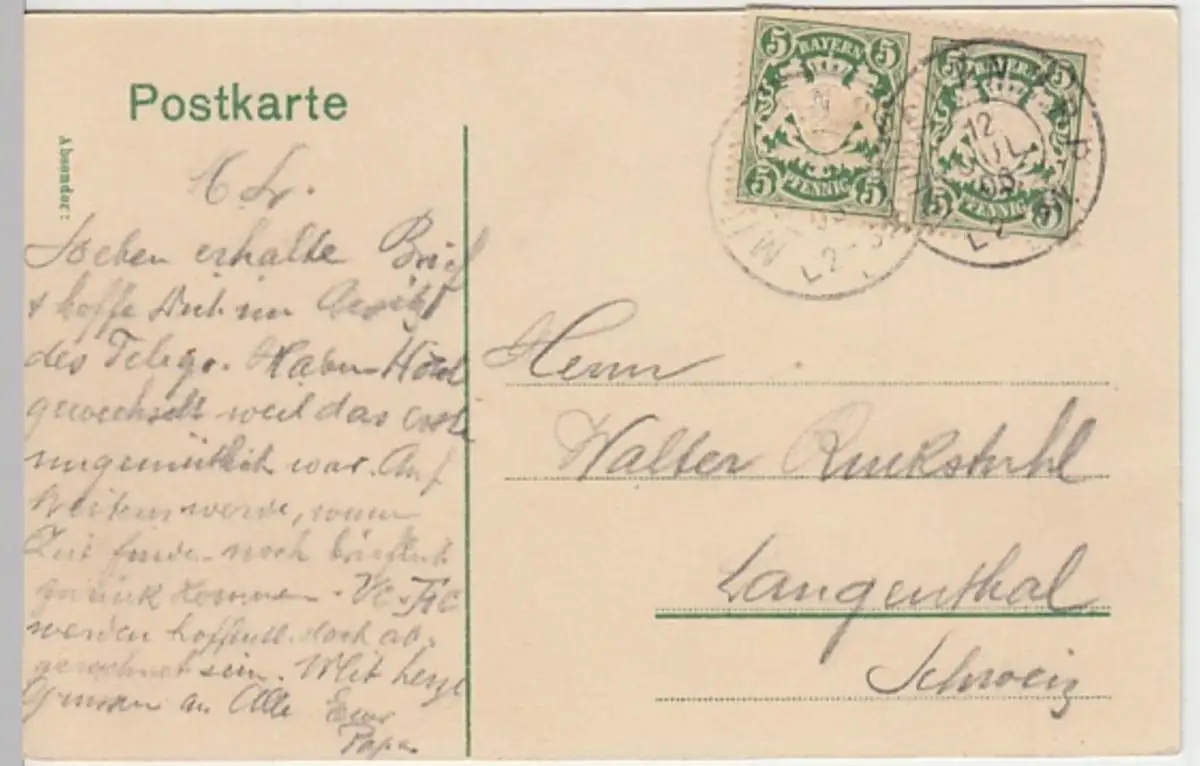 Postkarte
Absender:
5 BAYERN 5
5 PFENNIG 5
5 BAYERN 5
5 PFENNIG 5
12
L 2
L 2
Soeben erhalte Brief
& hoffe Dich im Besitz
des Telegr. Haben Hotel
gewechselt weil das erste
ungemütlich war. Auf
Weiteres werde, wenn
Zeit finde noch brieflich
zurück kommen.
werden hoffentl. doch ab-
gerechnet sein. Mit herzl
Grüssen an Alle Euer
Papa.
Herrn
Walter Ruckstuhl
Langenthal
Schweiz